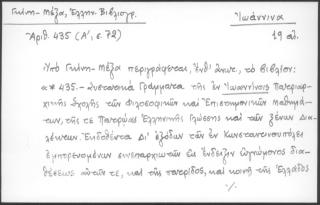 Γκίνη - Μέξα, Ἑλλην. Βιβλιογρ.
Ἰωάννινα
Ἀριθ. 435 (Α', σ. 72)
19 αἰ.
Ὑπὸ Γκίνη - Μέξα περιγράφεται, ἔνθ' ἀνωτ., τὸ Βιβλίον:
«* 435. - Συστατικὰ Γράμματα τῆς ἐν Ἰωαννίνοις Πατριαρ-
χικῆς Σχολῆς τῶν Φιλοσοφικῶν καὶ Ἐπιστημονικῶν Μαθημά-
των, τῆς τε Πατρῴας Ἑλληνικῆς Γλώσσης καὶ τῶν ξένων Δια-
λέκτων. Ἐκδοθέντα Δι' ἐξόδων τῶν ἐν Κωνσταντινουπόλει
ἐμπορευομένων συνεπαρχιωτῶν εἰς ἔνδειξιν εὐγνώμονος δια-
θέσεως αὐτῶν τε, καὶ τῆς πατρίδος, καὶ κοινῇ τῆς Ἑλλάδος
./.